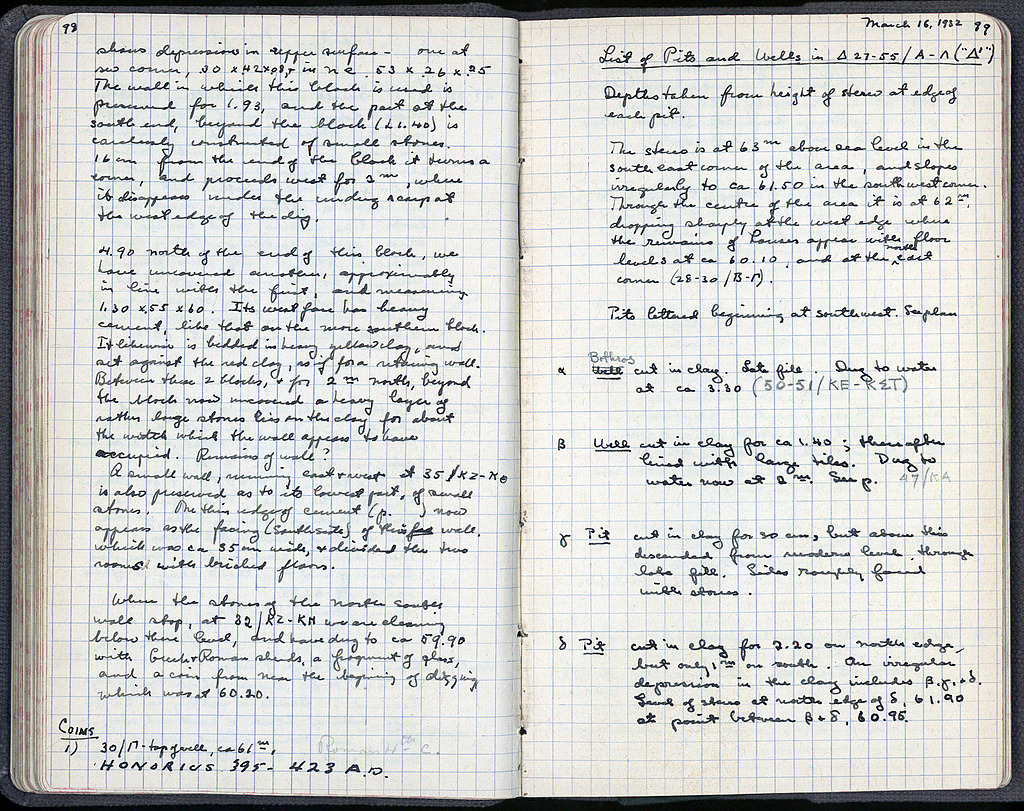 98
shows depression in upper surface - one at
sw corner, 30 x .42 x .08, + in n e .53 x .26 x .25
The wall in which this block is used is
preserved for 1.93, and the part at the
south end, beyond the block (L 1.40) is
carelessly constructed of small stones.
16 cm from the end of the block it turns a
corner, and proceeds west for 3 m, where
it disappears under the scarp at
the west edge of the dig.
4.90 north of the end of this block, we
have uncovered another, approximately
in line with the first, and measuring
1.30 x .55 x 60. Its west face has heavy
cement, like that on the more southern block.
It likewise is bedded in heavy yellow clay, and
set against the red clay, as if for a retaining wall.
Between these 2 blocks, + for 2 m north, beyond
the block now uncovered a heavy layer of
rather large stones lies on the clay for about
the width which the wall appears to have
occupied. Remains of wall?
A small wall, running east + west at 35/KZ-KΘ
is also preserved as to its lowest part, of small
stones. The thin edge of cement (p. ) now
appears as the facing (south side) of this wall,
which was ca 35 cm wide, + divided the two
rooms with bricked floors.
When the stones of the north south
wall stop, at 32/KZ-KH we are cleaning
below their level, and have dug to ca 59.90
with Greek + Roman sherds, a fragment of glass,
and a coin from near the beginning of digging
which was at 60.20.
Coins
1) 30/Π - top of well, ca 61 m. Roman 4th C.
HONORIUS 395 - 423 A.D.
March 16, 1932 99
List of Pits and Wells in Δ 27-55/A-Λ ("Δ'")
Depths taken from height of stereo at edge of
each pit.
The stereo is at 63 m above sea level in the
south east corner of the area, and slopes
irregularly to ca 61.50 in the southwest corner.
Through the centre of the area it is at 62 m,
dropping sharply at the west edge where
the remains of houses appear with floor
levels at ca 60.10, and at the north east
corner (28-30/B-Γ).
Pits lettered beginning at southwest. See plan
Bothros
α Well cut in clay. Late fill. Dug to water
at ca 3.30 (50-51/KE-KΣT)
β Well cut in clay for ca 1.40; thereafter
lined with large tiles. Dug to
water now at 2 m. See p. 47/KA
γ Pit cut in clay for 30 cm, but above this
descended from modern level through
late fill. Sides roughly faced
with stones.
δ Pit cut in clay for 2.20 on north edge,
but only 1 m on south. An irregular
depression in the clay includes β, γ, + δ.
Level of stereo at north edge of δ, 61.90
at point between β + δ, 60.95